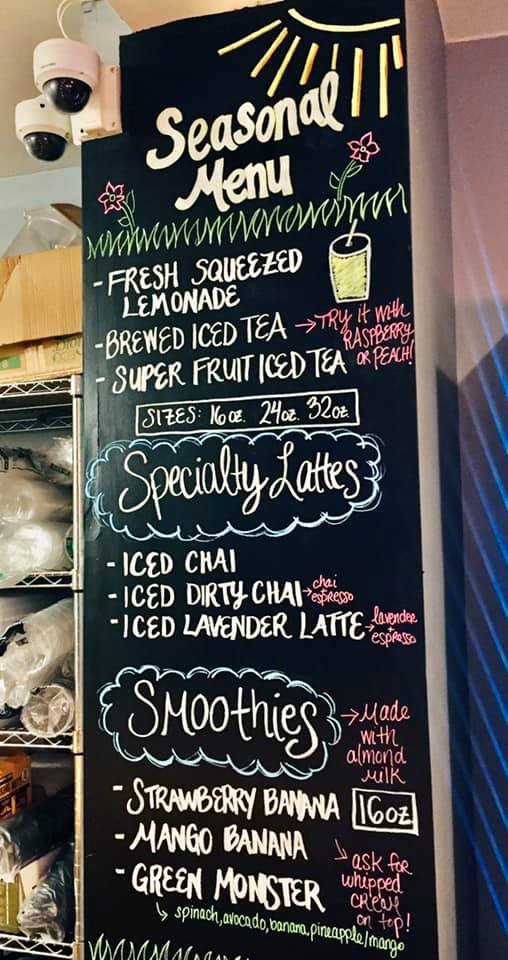 Seasonal
Menu
- FRESH SQUEEZED
LEMONADE
- BREWED ICED TEA
→ TRY it with
RASPBERRY
OR PEACH!
- SUPER FRUIT ICED TEA
SIZES: 16oz. 24oz. 32oz
Specialty Lattes
- ICED CHAI
- ICED DIRTY CHAI
→ chai
+
espresso
- ICED LAVENDER LATTE
→ lavender
+
espresso
SMOOTHIES
→ Made
with
almond
milk
- STRAWBERRY BANANA
16oz
- MANGO BANANA
- GREEN MONSTER
→ ask for
whipped
cream
on top!
→ spinach, avocado, banana, pineapple/mango